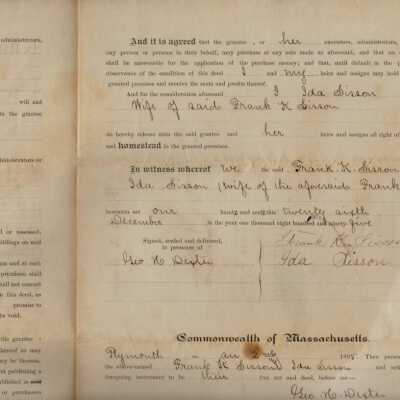 administrators,
will and
to the grantee
administrators or
or assessed,
buildings on said
and at such
premises shall
shall not commit
in this deed, as
promise to
be void.
the grantee
thereof as may
may be therein,
publishing a
published in
And it is agreed that the grantee , or her executors, administrators,
any person or persons in their behalf, may purchase at any sale made as aforesaid, and that no
shall be answerable for the application of the purchase money; and that, until default in the
observance of the condition of this deed I and my heirs and assigns may hold
granted premises and receive the rents and profits thereof.
And for the consideration aforesaid I Ida Sisson
Wife of said Frank K Sisson
do hereby release unto the said grantee and her heirs and assigns all right of
and homestead in the granted premises.
In witness whereof We the said Frank K. Sisson
Ida Sisson (wife of the aforesaid Frank
hereunto set our hands and seals this twenty sixth
December in the year one thousand eight hundred and ninety five
Signed, sealed and delivered,
in presence of
Geo H Dexter
Frank K Sisson
Ida Sisson
Commonwealth of Massachusetts.
Plymouth ss. Jan 2nd 189 Then
the above-named Frank K Sisson Ida Sisson and
foregoing instrument to be their free act and deed, before me—
Geo H. Dexter